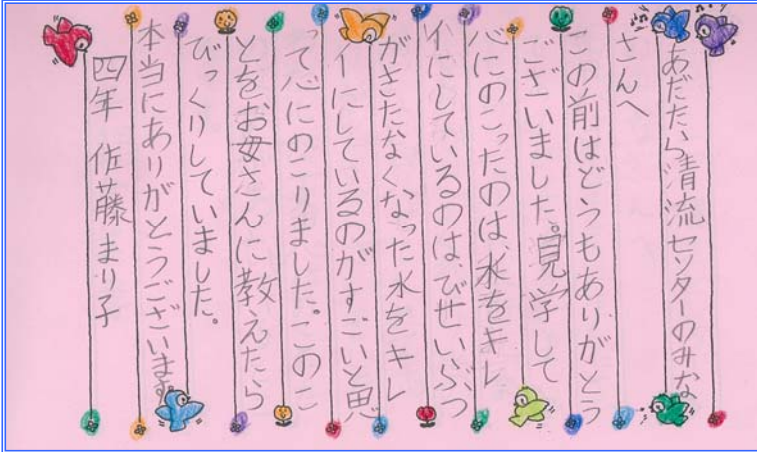 あだたら清流センターのみな
さんへ
この前はどうもありがとう
ございました。見学して
心にのこったのは、水をキレ
イにしているのは、びせいぶつ
がきたなくなった水をキレ
イにしているのがすごいと思
って心にのこりました。このこ
とをお母さんに教えたら
びっくりしていました。
本当にありがとうございます。
四年 佐藤まり子